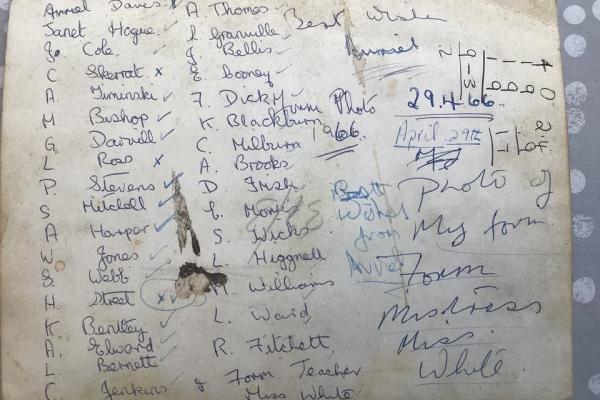 Anniel Davies
Janet Hogue
J. Cole
C Skarrat x
A. Siminski
M Bishop
G Darvill
L Ross x
P. Stevens
S Mitchell
A Harper
W. Jones
S. Webb
H Street x
K Bentley
A. Elward
L Bennett
C. Jenkins &
A Thomas
L Granville
J Bellis
E Cooney
F. Dick
K. Blackburn
C. Milburn
A. Brooks
D. Irish
S. Wicks
L. Higgnell
M. Williams
L. Waid
R. Fitchett
Form Teacher
Miss White
Best Wishes
Anniel
Form Photo
1966.
29.4.66.
April. 29th
Best
Wishes
from
Anniel
Photo of
My form
Form
Mistress
Miss.
White.